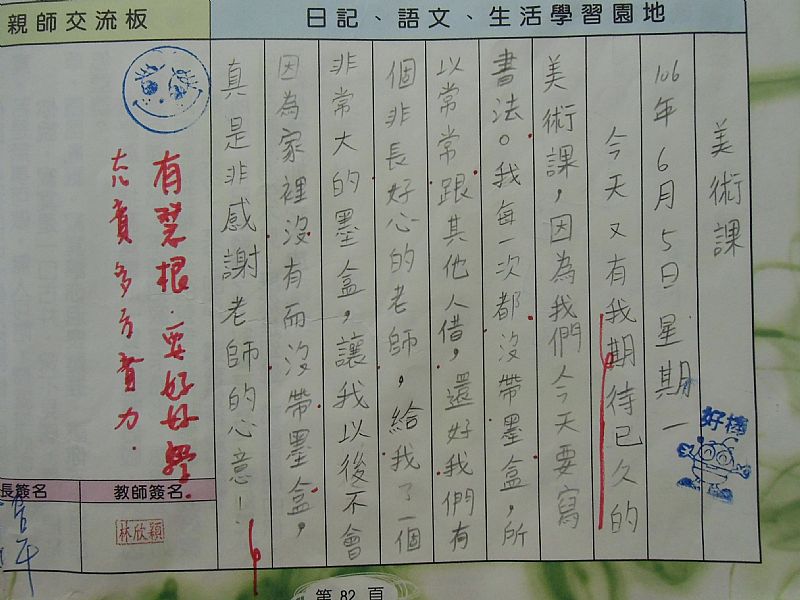 親師交流板
日記、語文、生活學習園地
美術課
106年6月5日星期一
今天又有我期待已久的
美術課，因為我們今天要寫
書法。我每一次都沒帶墨盒，所
以常常跟其他人借，還好我們有
個非長好心的老師，給我了一個
非常大的墨盒，讓我以後不會
因為家裡沒有而沒帶墨盒，
真是非感謝老師的心意！
好棒
有慧根．要好好學．
長簽名
教師簽名
林欣穎
第 82 頁